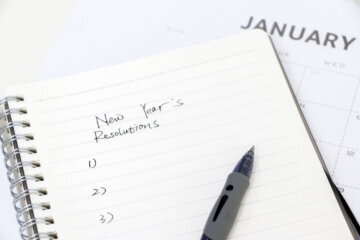 JANUARY
New Year's
Resolutions
1)
2)
3)